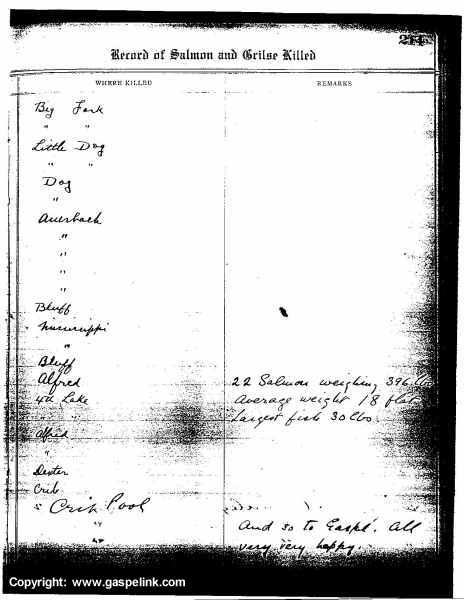 Record of Salmon and Grilse Killed
WHERE KILLED REMARKS
Big Fork
" "
Little Dog
" "
Dog
"
Auerbach
"
"
"
"
Bluff
Mississippi
"
Bluff
Alfred 22 Salmon weighing 396 lbs
4th Lake Average weight 18 flat
Largest fish 30 lbs.
Alfred
"
Dexter
Crib
" Crib Pool
" And so to Gaspé. All
" very very happy.
Copyright: www.gaspelink.com